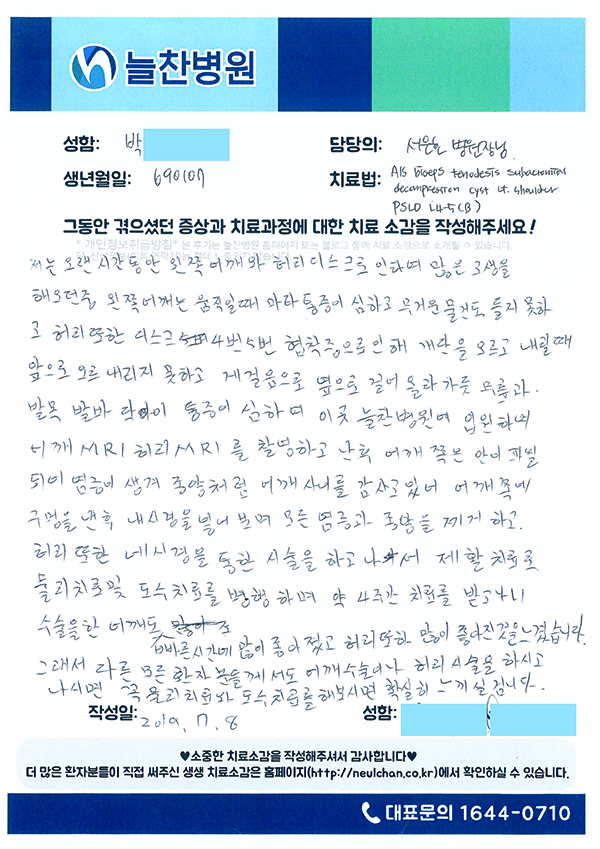 늘찬병원
성함: 박
담당의: 서은호 병원장님.
생년월일: 690107
치료법: A/S biceps tenodesis subacromial
decompression cyst Lt. shoulder
PSLD L4-5(B)
그동안 겪으셨던 증상과 치료과정에 대한 치료 소감을 작성해주세요!
* 개인정보취급방침* 본 후기는 늘찬병원 홈페이지 또는 블로그 등에 치료 소감으로 소개될 수 있습니다.
저는 오랜시간동안 왼쪽어깨와 허리디스크로 인하여 많은 고생을
해오던중 왼쪽어깨는 움직일때 마다 통증이 심하고 무거운 물건도 들지 못하
고 허리또한 디스크 4번5번 협착증으로 인해 계단을 오르고 내릴때
앞으로 오르내리지 못하고 게걸음으로 옆으로 걸어 올라가듯 무릎과.
발목 발바닥이 통증이 심하여 이곳 늘찬병원에 입원하여
어깨 MRI 허리 MRI 를 촬영하고 난후 어깨 쪽은 안이 파열
되어 염증이 생겨 종양처럼 어깨사이를 감싸고 있어 어깨쪽에
구멍을 낸후 내시경을 넣어 보며 모든 염증과 종양을 제거 하고.
허리 또한 네시경을 통한 시술을 하고 나서 재활치료로
물리치료및 도수치료를 병행 하며 약 4주간 치료를 받고나니
수술을한 어깨도
빠른시간에 많이 좋아졌고 허리또한 많이 좋아진것을느겼습니다.
그래서 다른 모든 환자분들께서도 어깨수술이나 허리시술을 하시고
나시면 꼭 물리치료와 도수치료를해보시면 확실히 느끼실겁니다.
작성일: 2019. 7. 8
성함:
♥소중한 치료소감을 작성해주셔서 감사합니다♥
더 많은 환자분들이 직접 써주신 생생 치료소감은 홈페이지(http://neulchan.co.kr)에서 확인하실 수 있습니다.
대표문의 1644-0710